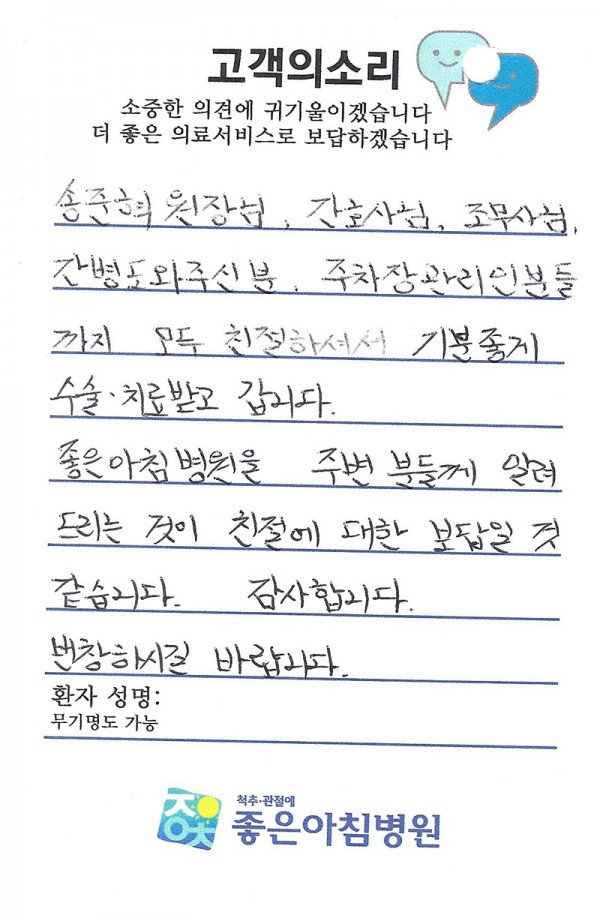 고객의소리
소중한 의견에 귀기울이겠습니다
더 좋은 의료서비스로 보답하겠습니다
송준혁 원장님, 간호사님, 조무사님,
간병도와주신분, 주차장관리인분들
까지 모두 친절하셔서 기분좋게
수술·치료받고 갑니다.
좋은아침병원을 주변 분들께 알려
드리는 것이 친절에 대한 보답일 것
같습니다. 감사합니다.
번창하시길 바랍니다.
환자 성명:
무기명도 가능
척추·관절에
좋은아침병원